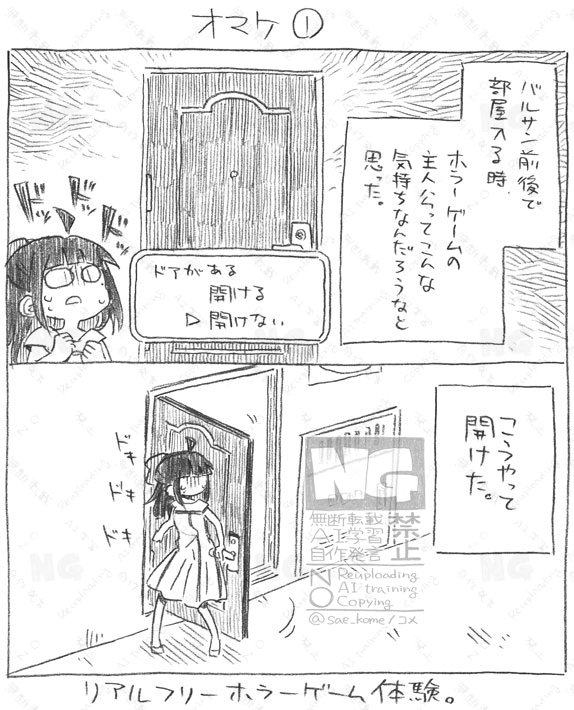 オマケ①
バルサン前後で
部屋入る時、
ホラーゲームの
主人公ってこんな
気持ちなんだろうなと
思った。
ドドド
ドアがある
開ける
▷開けない
こうやって
開けた。
ドキ
ドキ
ドキ
NG
無断転載
AI学習
自作発言
禁止
NO
Reuploading
AI training
Copying
@sae_kome/コメ
リアルフリーホラーゲーム体験。